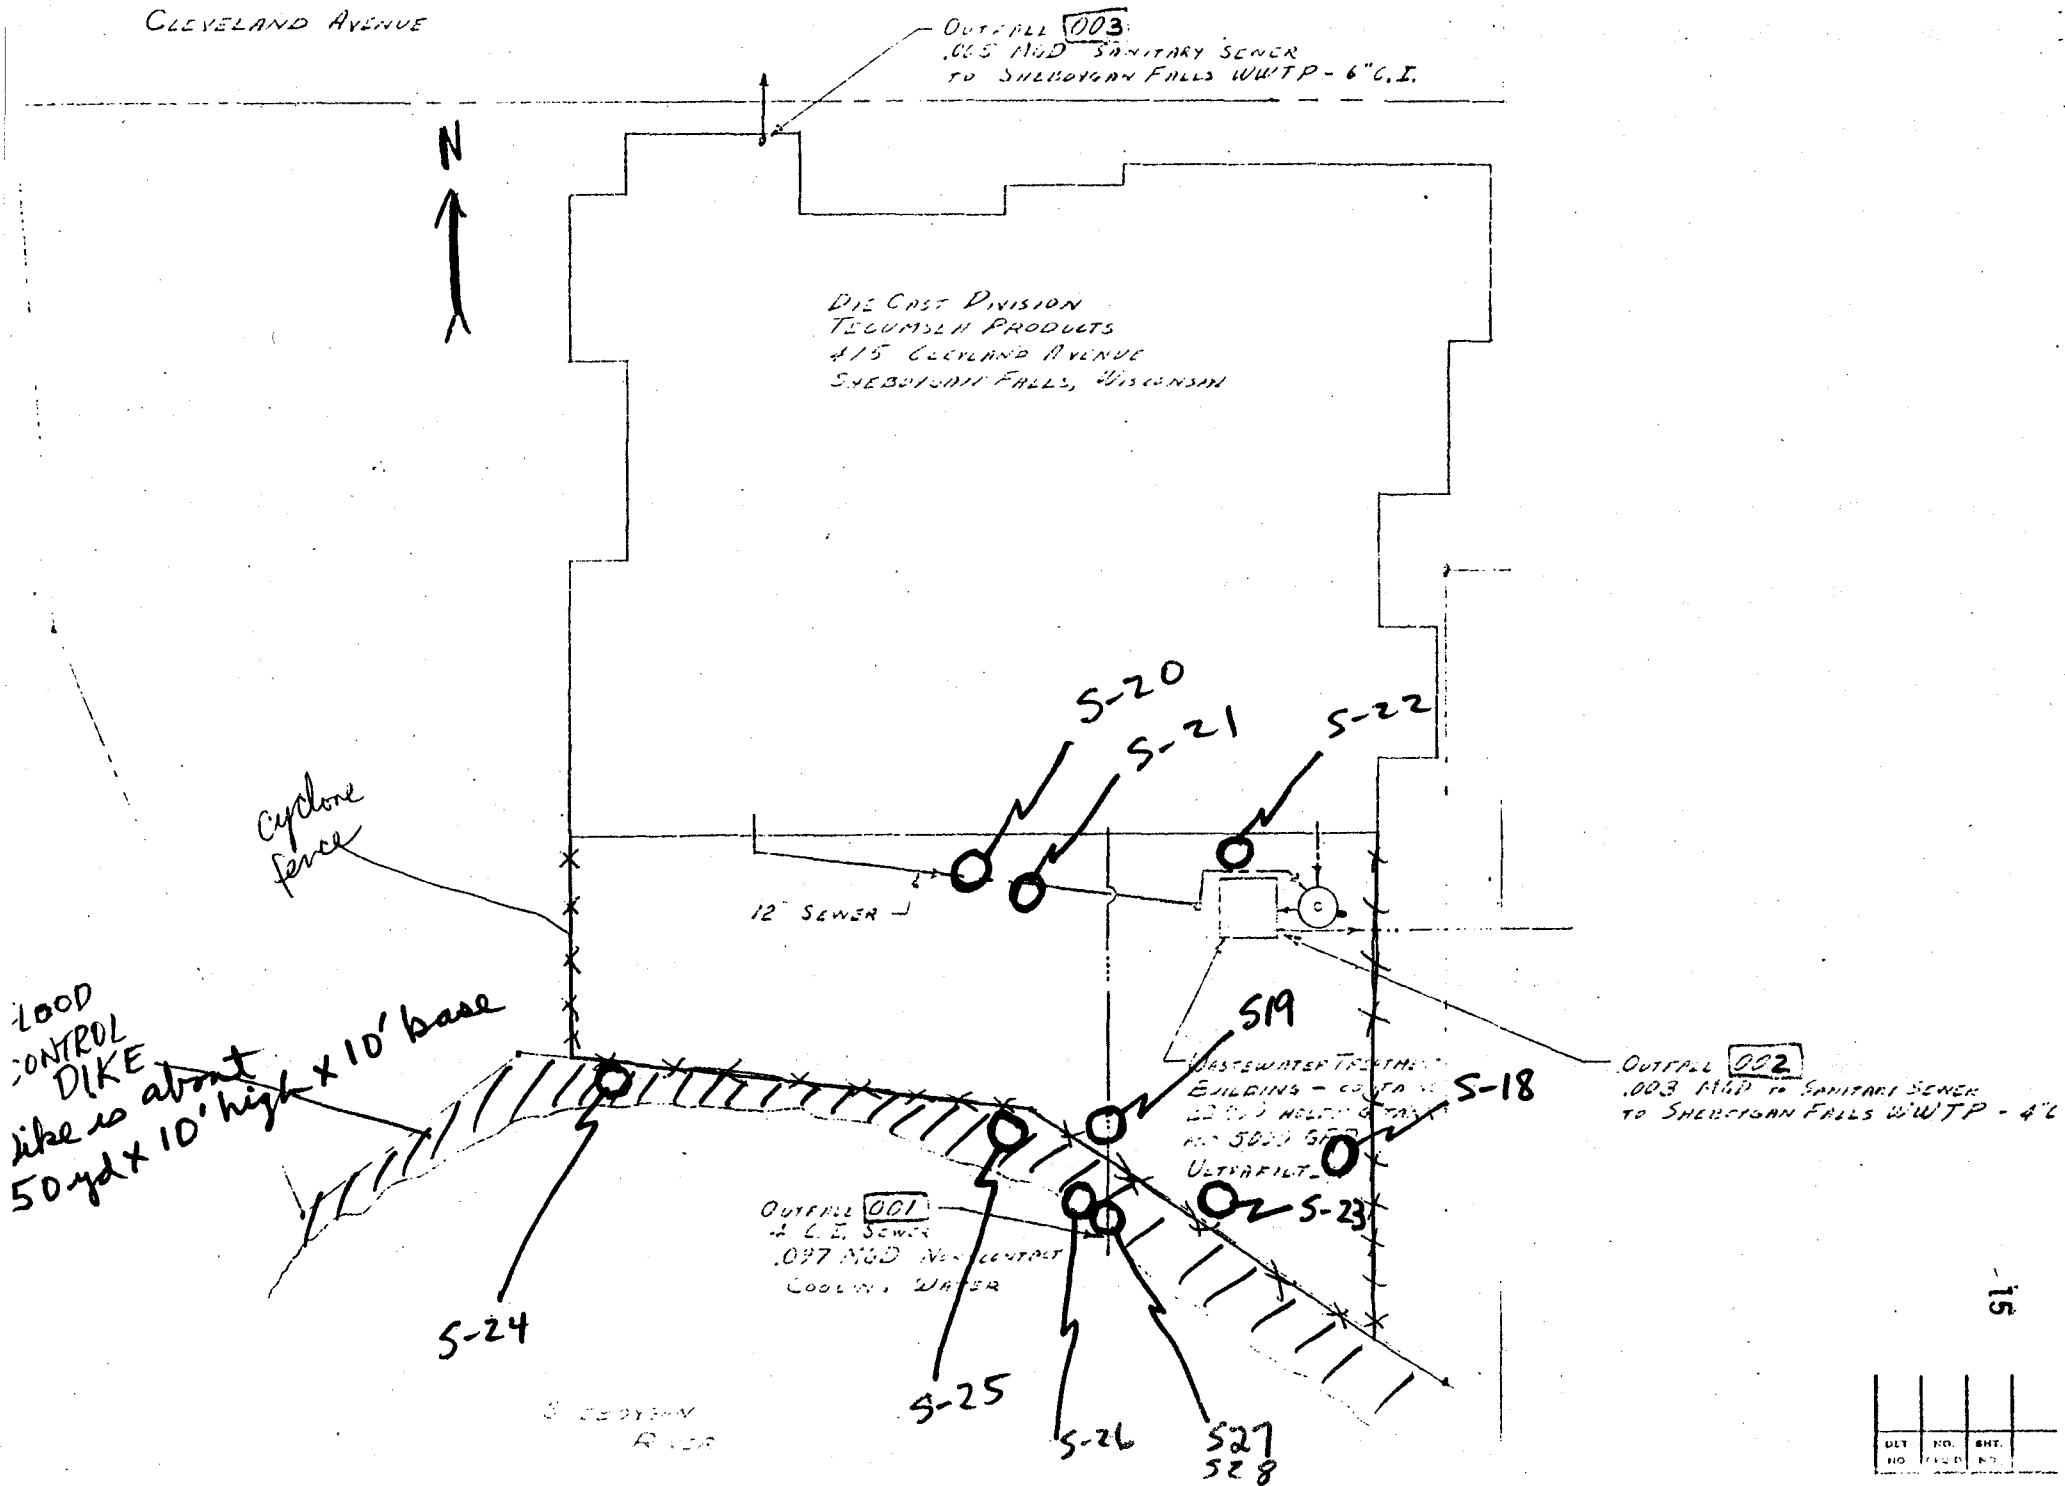 CLEVELAND AVENUE
OUTFALL 003
MGD SANITARY SEWER
TO SHEBOYGAN FALLS WWTP - 6" C.I.
N
DIE CAST DIVISION
TECUMSEH PRODUCTS
415 CLEVELAND AVENUE
SHEBOYGAN FALLS, WISCONSIN
S-20
S-21
S-22
cyclone
fence
12" SEWER
LOOD
CONTROL
DIKE
dike is about
50 yd x 10' high x 10' base
S19
WASTEWATER TREATMENT
BUILDING -
S-18
OUTFALL 002
.003 MGD TO SANITARY SEWER
TO SHEBOYGAN FALLS WWTP - 4"
S-23
OUTFALL 001
C.I. SEWER
.097 MGD NON-CONTACT
COOLING WATER
S-24
S-25
S-26
S27
S28
SHEBOYGAN
RIVER
15
NO. SHT.
NO. NO.